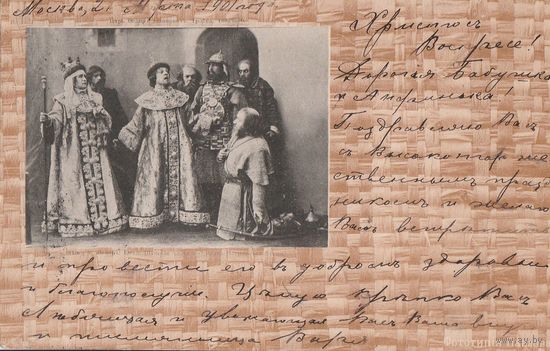 Москва, 21 Марта 1901 года
Христосъ
Воскресе!
Дорогая Бабушка
и
Поздравляю Васъ
съ Высокоторже
ственнымъ празд
никомъ и желаю
Вамъ встретить
и провести его въ добромъ здоровьи
и благополучии. Цѣлую крѣпко Васъ
Любящая и уважающая Васъ Ваша
и племянница Варя
www.ay.by